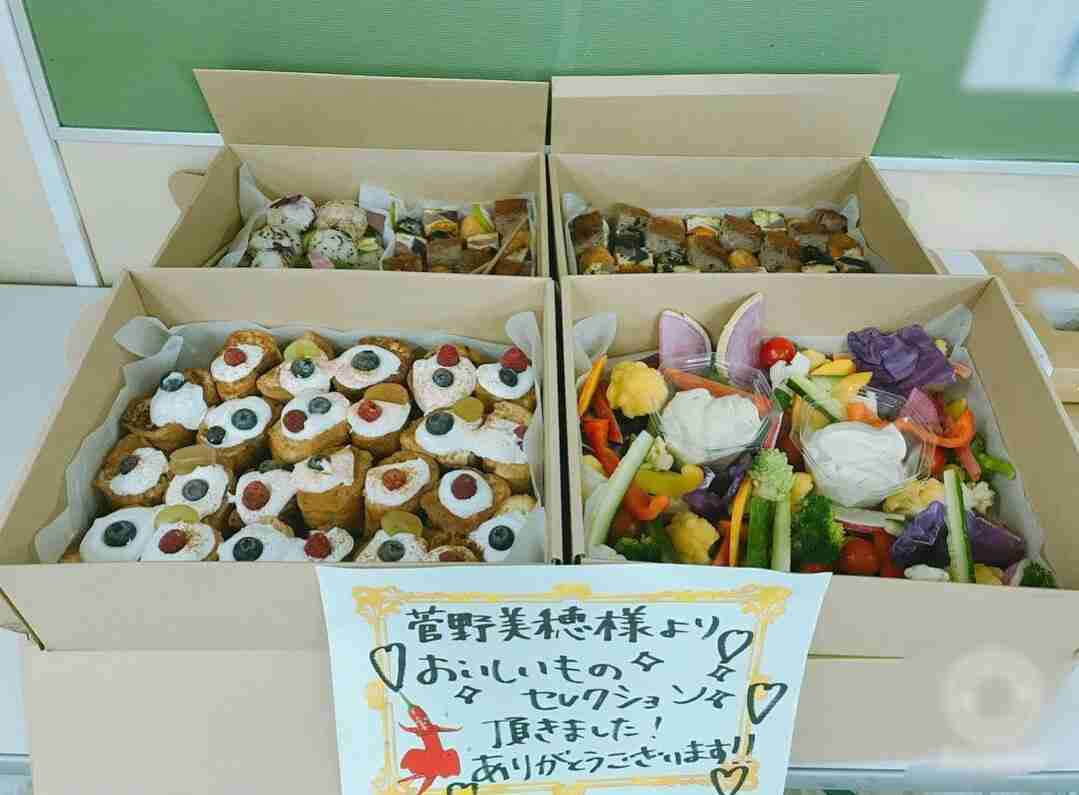 菅野美穂様より
おいしいもの
セレクション
頂きました!
ありがとうございます!!